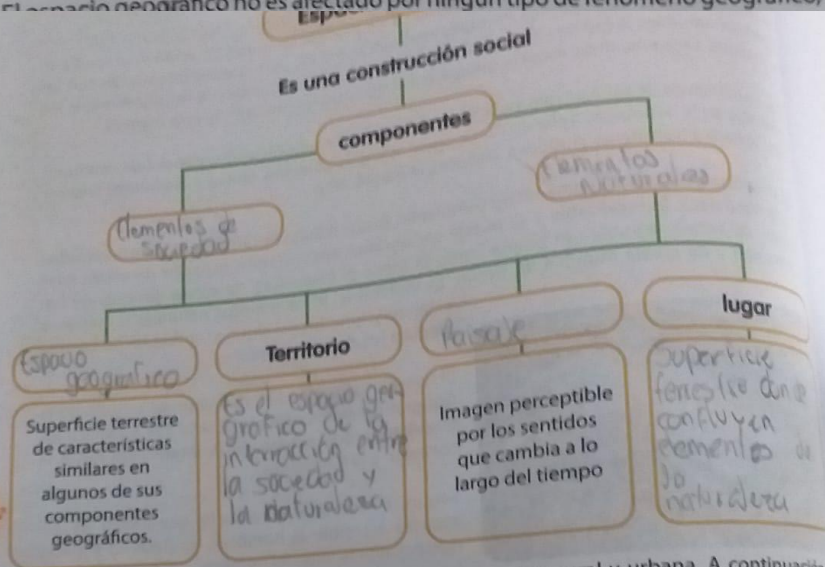 El espacio geográfico no es afectado por ningún tipo de fenómeno geográfico,
Es una construcción social
componentes
Elementos
Naturales
Elementos de
sociedad
Espacio
geografico
Territorio
Paisaje
lugar
Superficie terrestre
de características
similares en
algunos de sus
componentes
geográficos.
Es el espacio geo
grafico de la
interracción entre
la sociedad y
la naturaleza
Imagen perceptible
por los sentidos
que cambia a lo
largo del tiempo
superficie
donde
confluyen
elementos de
la
naturaleza
urbana. A